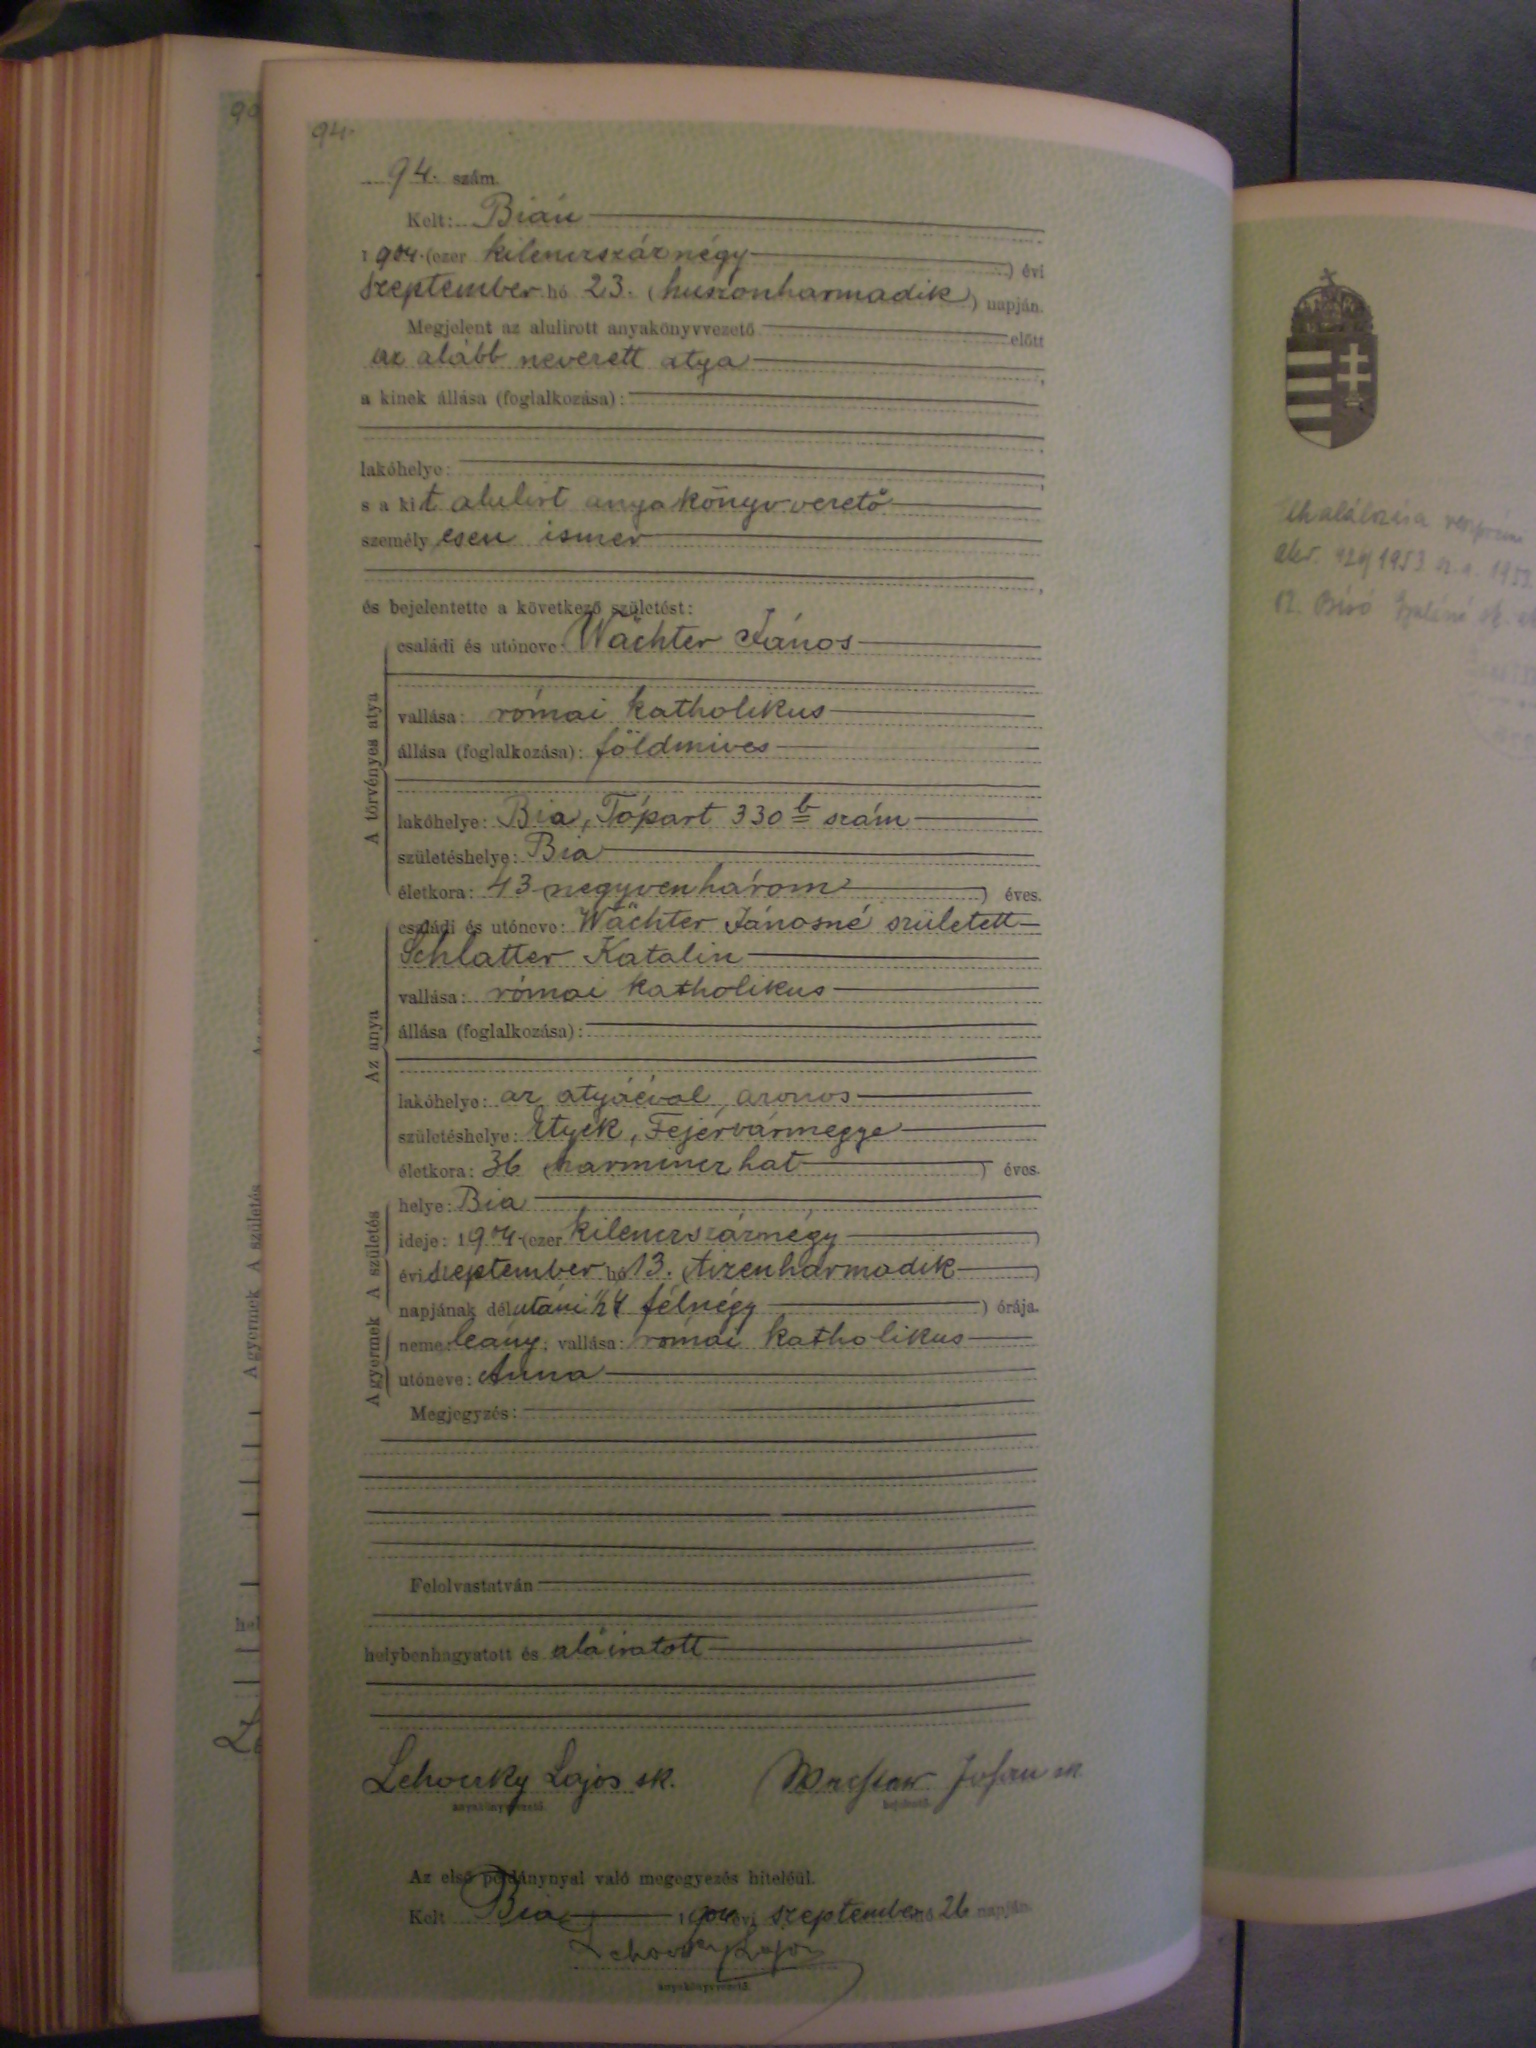 94.
94. szám.
Kelt: Bián
1904. (ezer kilenczszáznégy) évi
szeptember hó 23. (huszonharmadik) napján.
Megjelent az alulirott anyakönyvvezető előtt
az alább nevezett atya,
a kinek állása (foglalkozása):
lakóhelye:
s a kit alulirt anyakönyvvezető
személyesen ismer
és bejelentette a következő születést:
A törvényes atya
családi és utóneve: Wächter János
vallása: római katholikus
állása (foglalkozása): földmives
lakóhelye: Bia, Tópart 330 b szám
születéshelye: Bia
életkora: 43 negyvenhárom) éves.
Az anya
családi és utóneve: Wächter Jánosné született
Schlatter Katalin
vallása: római katholikus
állása (foglalkozása):
lakóhelye: az atyáéval azonos
születéshelye: Etyek, Fejérvármegye
életkora: 36 (harminczhat) éves.
A születés
helye: Bia
ideje: 1904. (ezer kilenczszáznégy)
évi szeptember hó 13. (tizenharmadik)
napjának délutáni 1/2 4 félnégy) órája.
A gyermek
neme: leány; vallása: római katholikus
utóneve: Anna
Megjegyzés:
Felolvastatván
helybenhagyatott és aláiratott
Lehoczky Lajos sk. Wachter Johan sk
anyakönyvvezető. bejelentő.
Az első példánynyal való megegyezés hiteléül.
Kelt Bia 1904 évi szeptember hó 26 napján.
Lehoczky Lajos
anyakönyvvezető.
A gyermek A születés
hel
1953
12. Biró